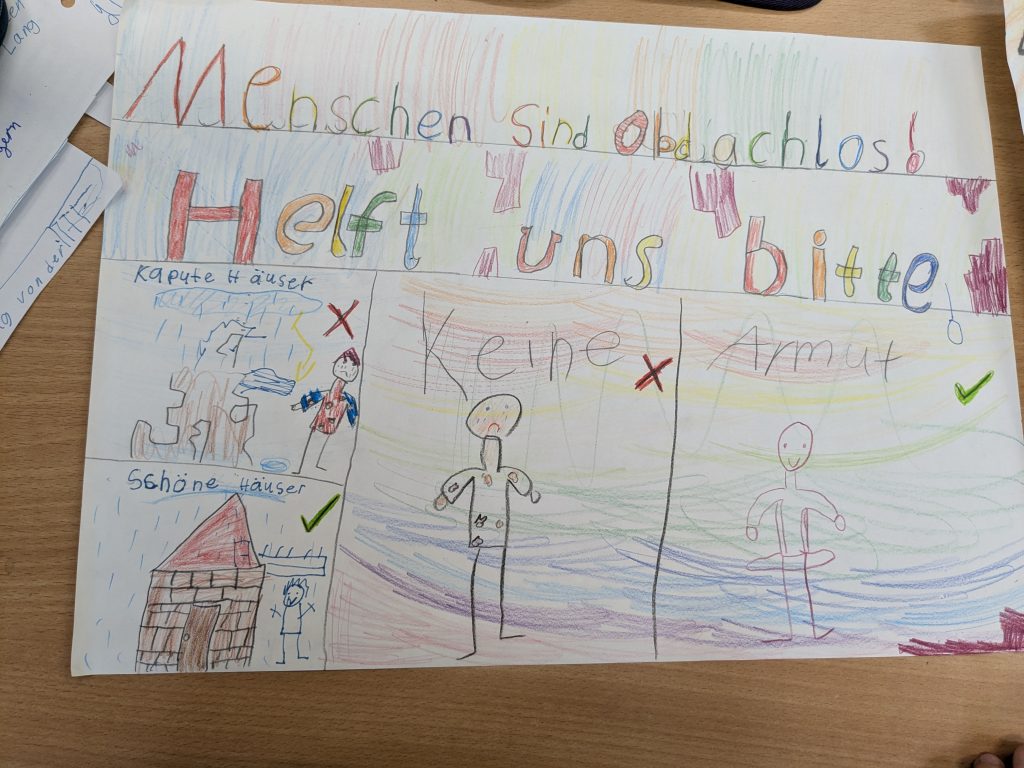 Menschen sind Obdachlos!
Helft uns bitte!
Kapute Häuser
Schöne Häuser
Keine Armut
Lang
gern
g von der